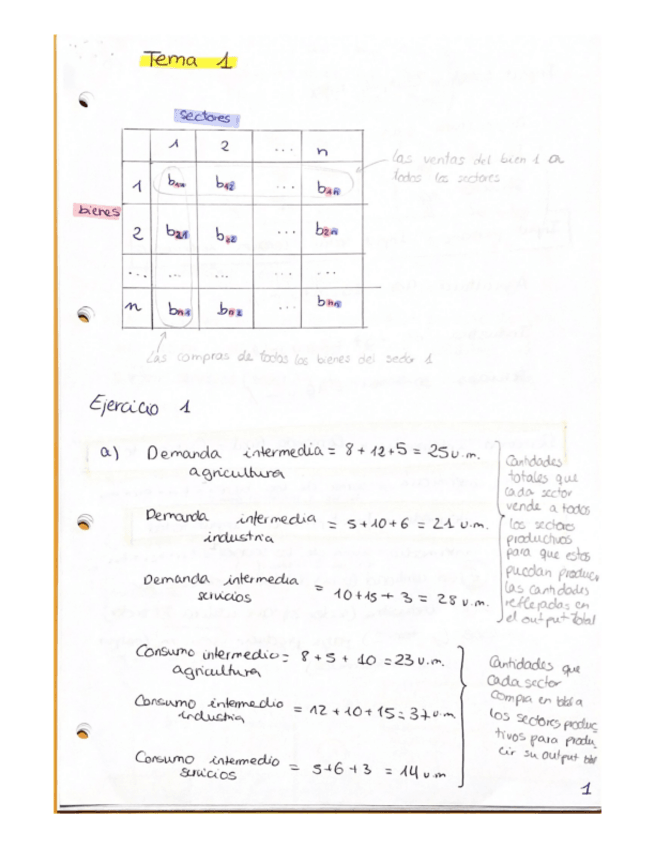 Tema 1
sectores
1 2 ... n
1 b11 b12 ... b1n
bienes
2 b21 b22 ... b2n
... ... ... ... ...
n bn1 bn2 ... bnn
las ventas del bien 1 a
todos los sectores
las compras de todos los bienes del sector 1
Ejercicio 1
a) Demanda intermedia = 8 + 12 + 5 = 25 u.m.
agricultura
Demanda intermedia = 5 + 10 + 6 = 21 u.m.
industria
Demanda intermedia = 10 + 15 + 3 = 28 u.m.
servicios
Cantidades
totales que
cada sector
vende a todos
los sectores
productivos
para que estos
puedan produc.
las cantidades
reflejadas en
el output total
Consumo intermedio = 8 + 5 + 10 = 23 u.m.
agricultura
Consumo intemedio = 12 + 10 + 15 = 37 u.m
industria
Consumo intermedio = 5 + 6 + 3 = 14 u.m
servicios
Cantidades que
cada sector
compra en total a
los sectores produc
tivos para produ.
cir su output
1